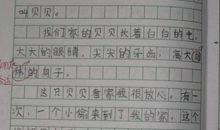 叫贝贝。
我们家的贝贝长着白白的毛,
大大的眼睛,尖尖的牙齿,高大
的身子。
这只贝贝看家我很放心。有一
次,一个小偷来到了我的家,这个